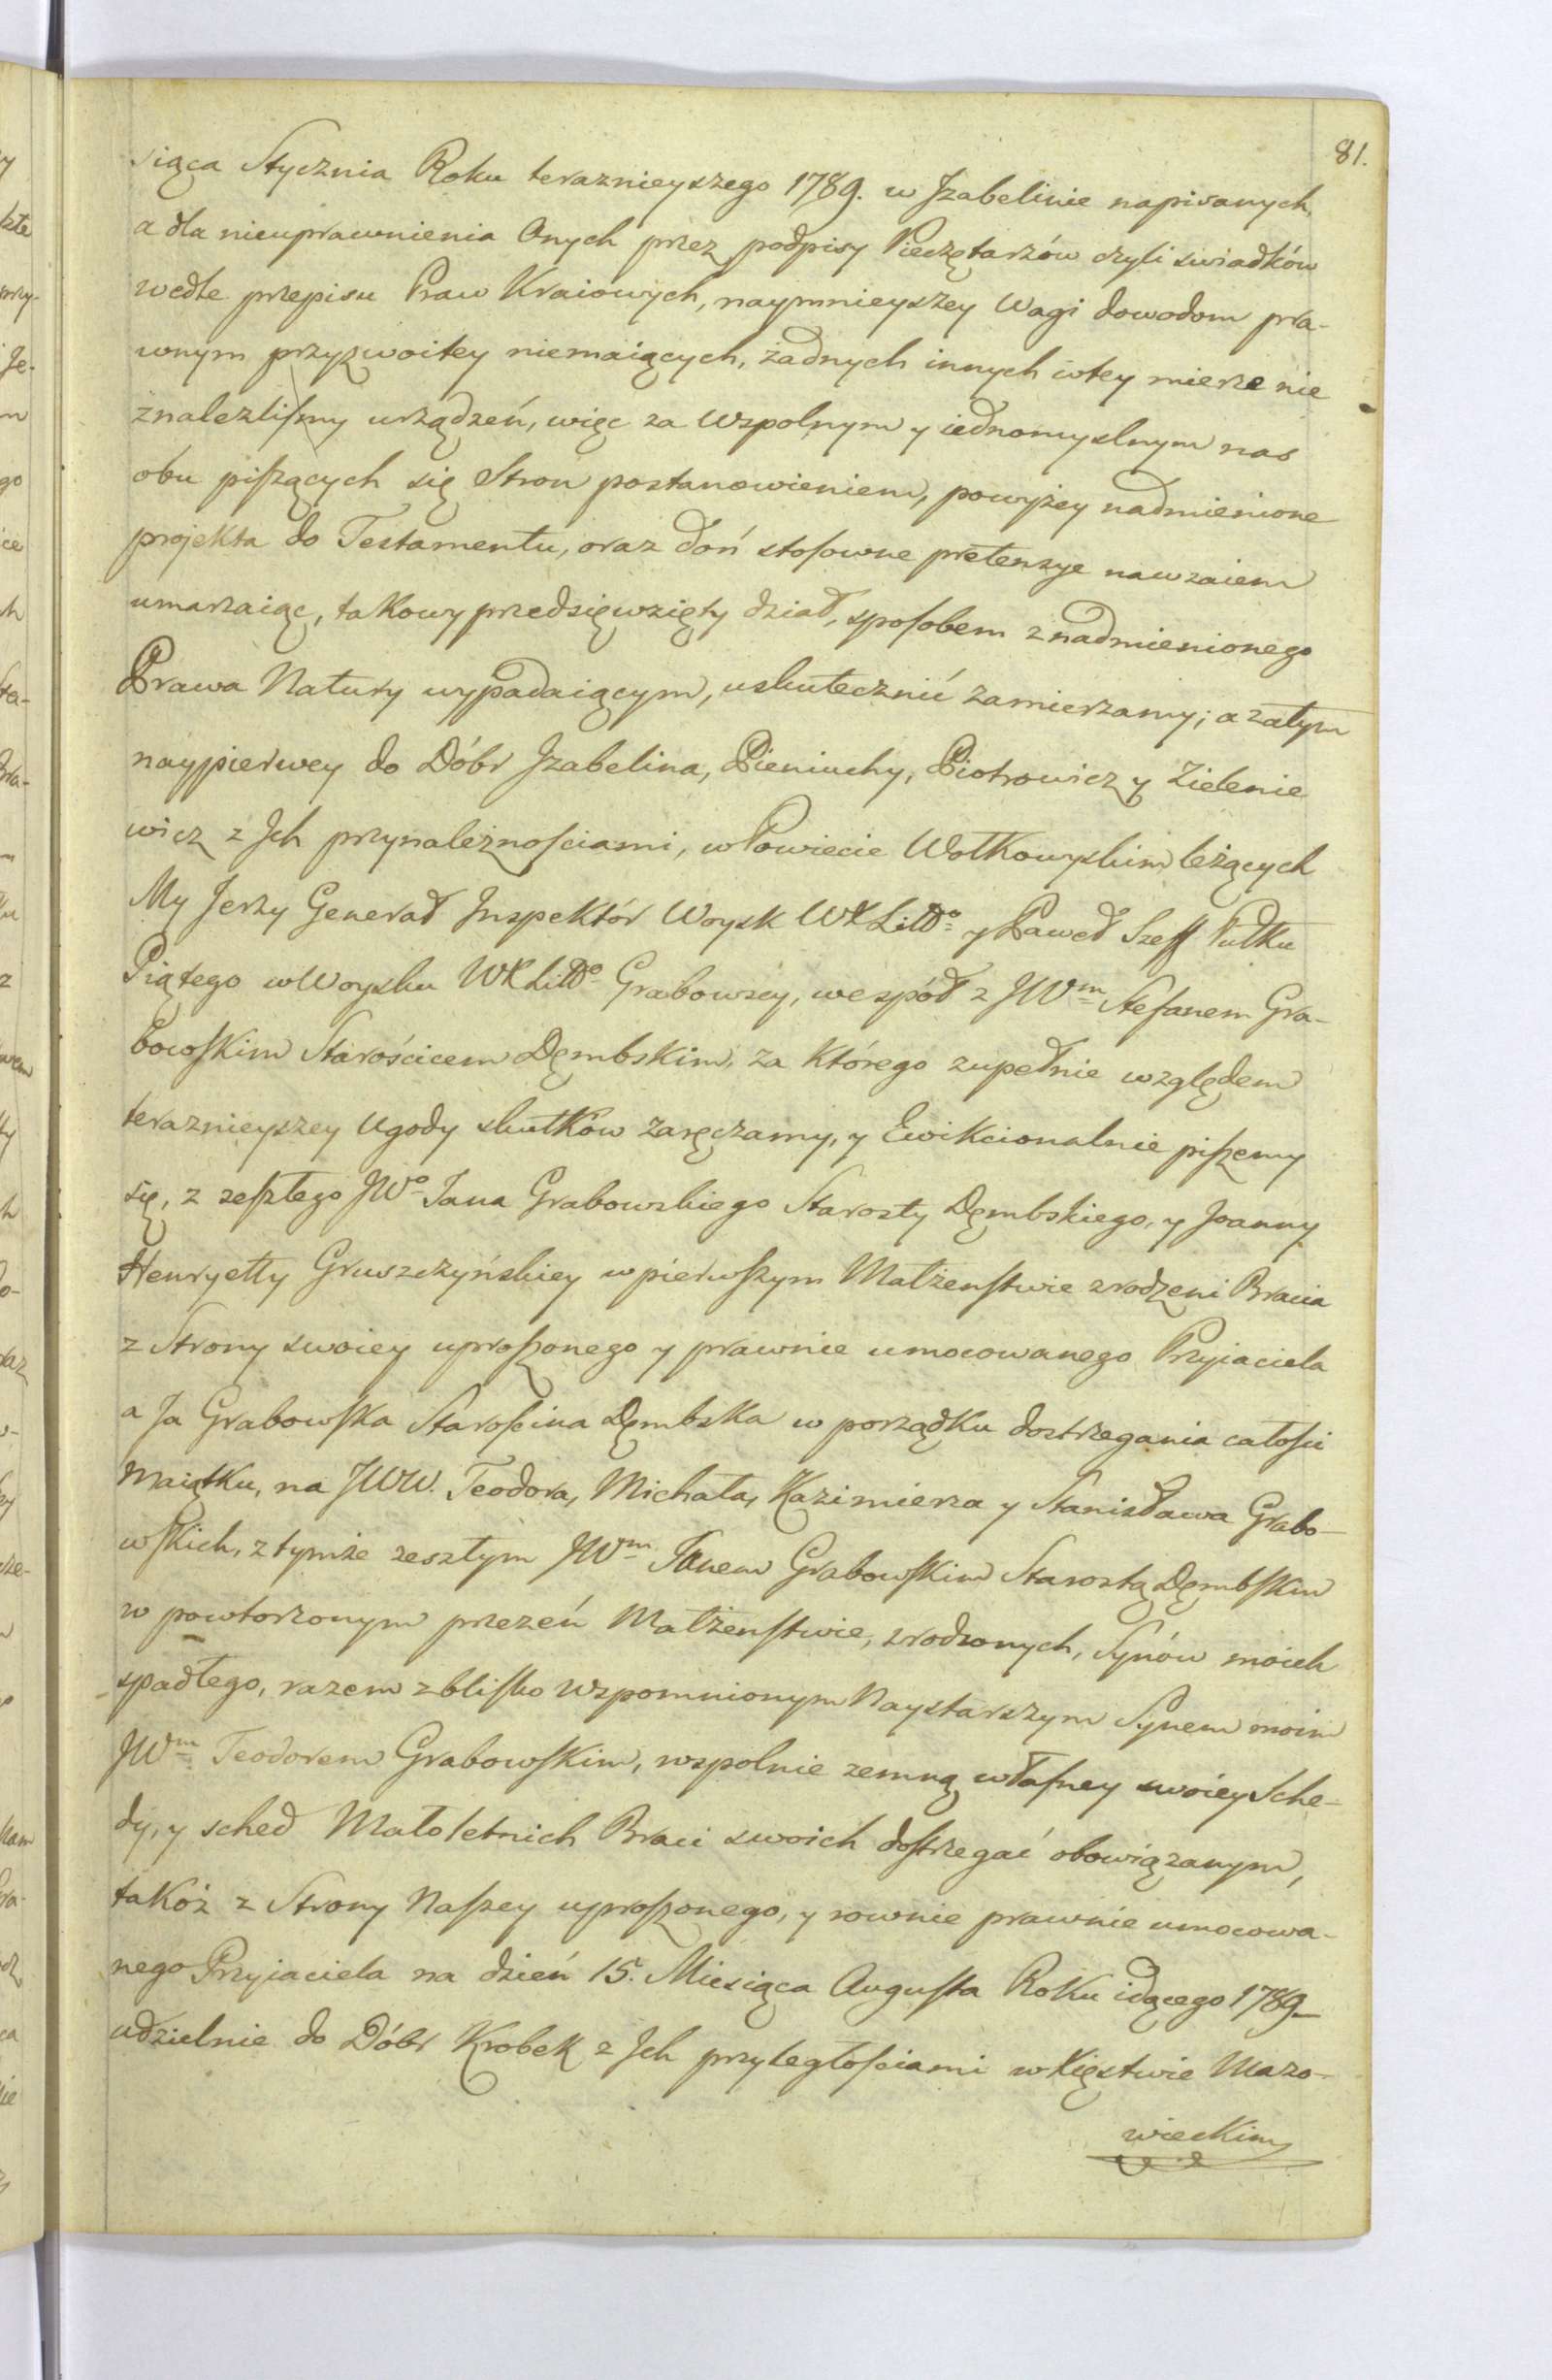 81.
siąca Stycznia Roku teraznieyszego 1789. w Jzabelinie napisanych,
a dla nieuprawnienia Onych przez podpisy Pieczętarzów czyli swiadków
wedle przepisu Praw Kraiowych, naymnieyszey Wagi dowodom pra-
wnym przyzwoitey niemaiących, żadnych innych wtey mierze nie
znalezliſmy urządzeń, więc za Wspolnym y iednomyslnym nas
obu piſzących się Stron postanowieniem, powyżey nadmienione
projekta do Testamentu, oraz doń stoſowne pretensye nawzaiem
umarzaiąc, takowy przedsięwzięty dział, spoſobem z nadmienionego
Prawa Natury wypadaiącym, uskutecznić zamierzamy; a zatym
naypierwey do Dóbr Jzabelina, Pieniuchy, Piotrowicz y Zielenie
wicz z Jch przynależnoſciami, w Powiecie Wołkowyskim leżących
My Jerzy Generał Jnspektór Woysk WX Litt⁰ y Paweł Szeff Pułku
Piątego w Woysku WX Litt⁰ Grabowscy, wespół z JWᵐ Stefanem Gra-
bowſkim Starościcem Dęmbskim, za którego zupełnie względem
teraznieyszey Ugody skutków zaręczamy, y Ewikcionalnie piſzemy
się, z zeſzłego JW⁰ Jana Grabowskiego Starosty Dęmbskiego, y Joanny
Henryetty Gruszczyńskiey w pierwſzym Małżenſtwie zrodzeni Bracia
z Strony swoiey uproſzonego y prawnie umocowanego Przyiaciela
a Ja Grabowſka Staroſcina Dęmbska w porządku dostrzegania całoſci
Maiątku, na JWW. Teodora, Michała, Kazimierza y Stanisława Grabo-
wſkich, z tymże zeszłym JWᵐ Janem Grabowſkim Starostą Dęmbſkim
w powtorzonym przezeń Małżenſtwie, zrodzonych, Synów moich
spadłego, razem z bliſko wspomnionym Naystarszym Synem moim
JWᵐ Teodorem Grabowſkim, wspolnie zemną właſney swoiey Sche-
dy, y sched Małoletnich Braci swoich doſtrzegać obowiązanym,
takóż z Strony Naſzey uproſzonego, y rownie prawnie umocowa-
nego Przyiaciela na dzień 15. Miesiąca Auguſta Roku idącego 1789
udzielnie do Dóbr Krobek z Jch przyległoſciami w Xięstwie Mazo-
wieckim